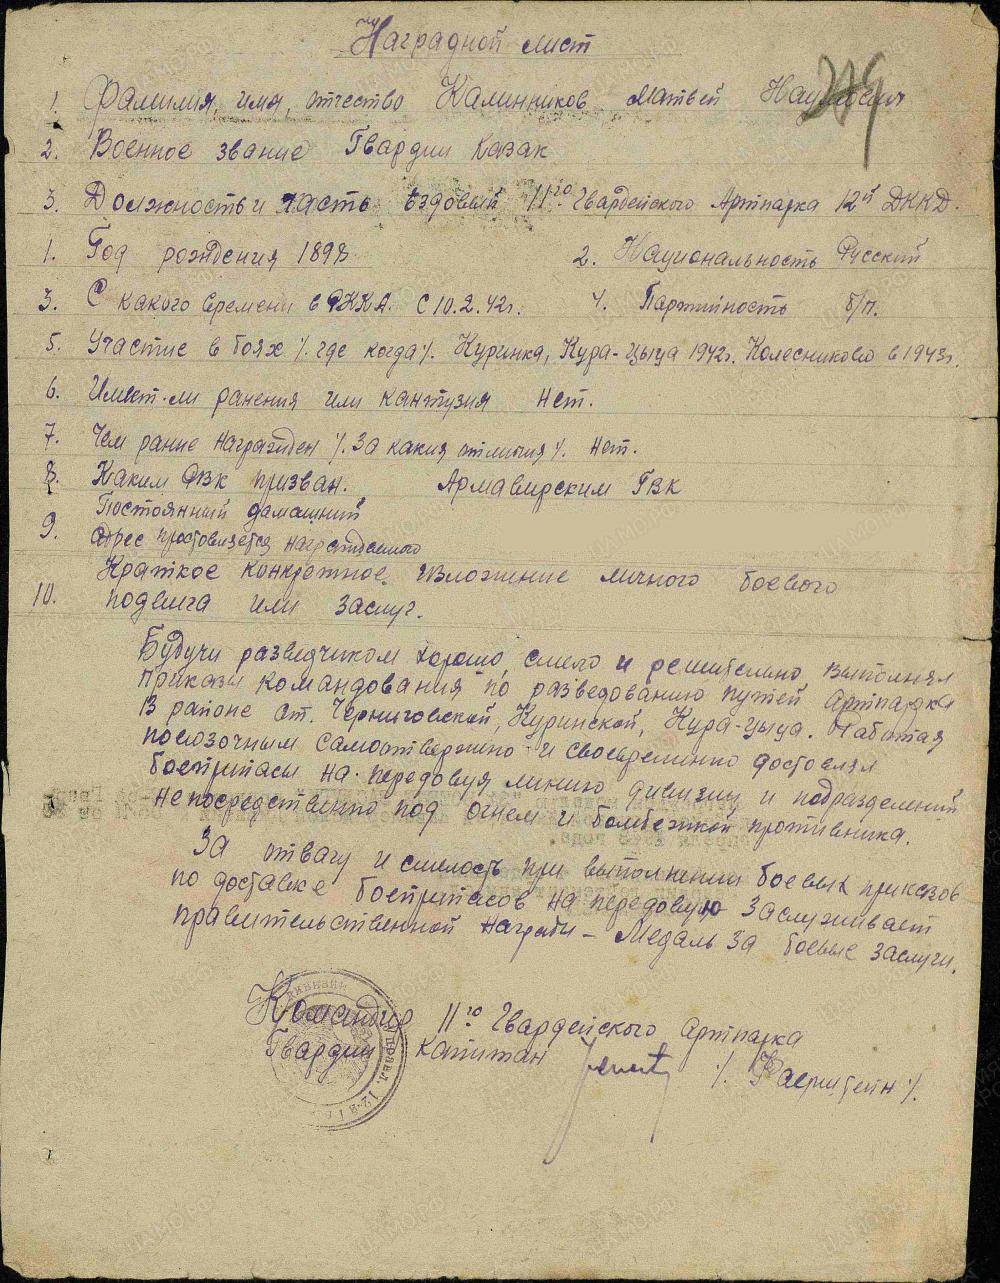 Наградной лист
1. Фамилия, имя, отчество Калинников Матвей Наумович
2. Военное звание Гвардии казак
3. Должность и часть ездовый 11го Гвардейского Артпарка 12й ДККД.
1. Год рождения 1898 2. Национальность Русский
3. С какого времени в РККА. С 10.2.42г. 4. Партийность б/п.
5. Участие в боях /. где когда /. Куринка, Кура-Цыца 1942г. Колесниково в 1943г.
6. Имеет-ли ранения или кантузия нет.
7. Чем ранне награжден /. За какия отличия /. нет.
8. Каким РВК призван. Армавирским ГВК
Постоянный дамашний
9. адрес
Краткое конкретное изложение личного боевого
10. подвига или заслуг.
Будучи разведчиком хорошо, смело и решительно выполнял
приказы командования по разведованию путей Артпарка
в районе ст. Черниговской, Куринской, Кура-Цыца. Работая
повозочным самоотвержно и своевременно доставлял
боеприпасы на передовуя линию дивизии и подразделений
непосредственно под огнем и бомбежкой противника.
За отвагу и смелость при выполнении боевых приказов
по доставке боеприпасов на передовую заслуживает
правительственной награды – Медаль За боевые заслуги.
Командир 11го Гвардейского артпарка
Гвардии капитан /. Фаерштейн /.